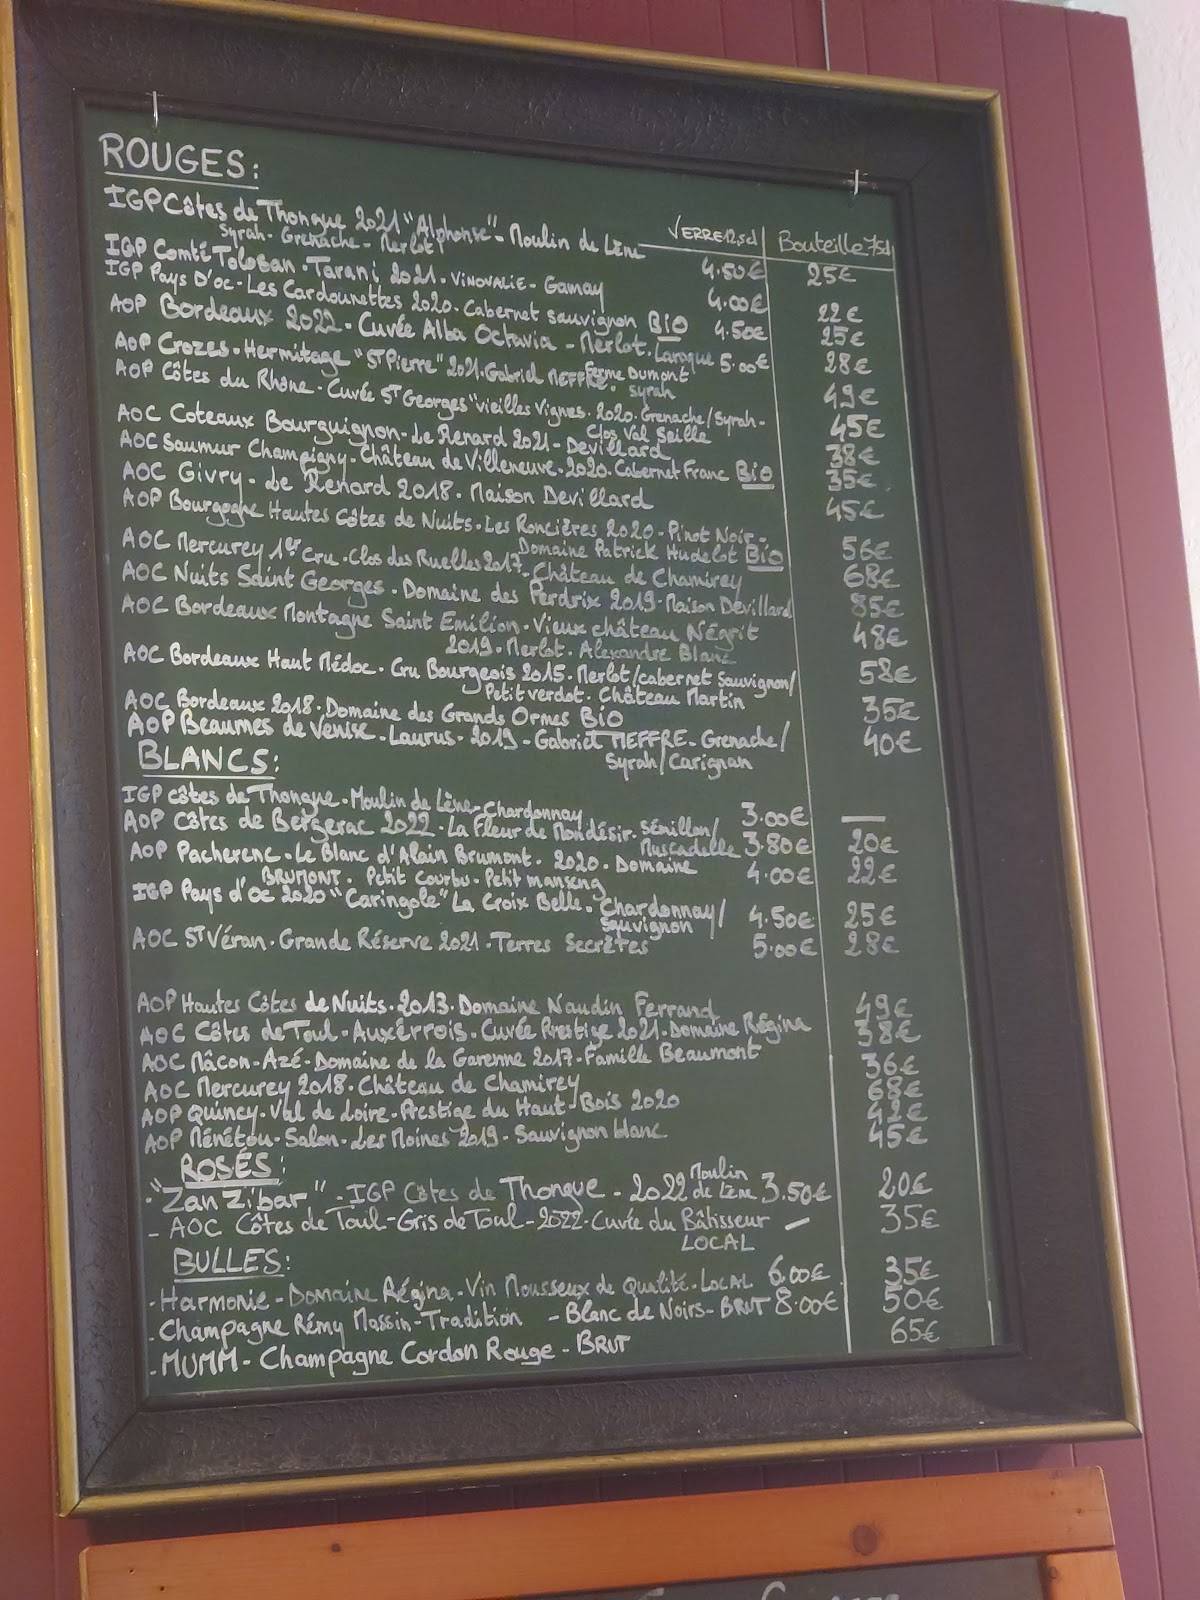 ROUGES:
VERRE 12,5cl Bouteille 75cl
IGP Côtes de Thongue 2021 "Alphonse" - Moulin de Lène 4.50€ 25€
Syrah - Grenache - Merlot
IGP Comté Tolosan - Tarani 2021 - VINOVALIE - Gamay 4.00€ 22€
IGP Pays D'oc - Les Cardounettes 2020 - Cabernet sauvignon BIO 4.50€ 25€
AOP Bordeaux 2022 - Cuvée Alba Octavia - Merlot - Laroque 5.00€ 28€
Ferme Dumont
AOP Crozes-Hermitage "St Pierre" 2021 - Gabriel MEFFRE - Syrah 49€
AOP Côtes du Rhône - Cuvée St Georges "vieilles Vignes - 2020 - Grenache/Syrah - 45€
Clos Val Seille
AOC Coteaux Bourguignon - Le Renard 2021 - Devillard 38€
AOC Saumur Champigny - Château de Villeneuve - 2020 - Cabernet Franc BIO 35€
AOC Givry - Le Renard 2018 - Maison Devillard 45€
AOP Bourgogne Hautes Côtes de Nuits - Les Roncières 2020 - Pinot Noir -
Domaine Patrick Hudelot BIO 56€
AOC Mercurey 1er Cru - Clos des Ruelles 2017 - Château de Chamirey 68€
AOC Nuits Saint Georges - Domaine des Perdrix 2019 - Maison Devillard 85€
AOC Bordeaux Montagne Saint Emilion - Vieux château Négrit 48€
2019 - Merlot - Alexandre Blanc
AOC Bordeaux Haut Médoc - Cru Bourgeois 2015 - Merlot/cabernet Sauvignon/ 58€
Petit verdot - Château Martin
AOC Bordeaux 2018 - Domaine des Grands Ormes BIO 35€
AOP Beaumes de Venise - Laurus - 2019 - Gabriel MEFFRE - Grenache/ 40€
Syrah/Carignan
BLANCS:
IGP côtes de Thongue - Moulin de Lène - Chardonnay 3.00€ —
AOP Côtes de Bergerac 2022 - La Fleur de Mondésir - Sémillon/ 3.80€ 20€
Muscadelle
AOP Pacherenc - Le Blanc d'Alain Brumont - 2020 - Domaine 4.00€ 22€
BRUMONT - Petit Courbu - Petit manseng
IGP Pays d'oc 2020 "Caringole" La Croix Belle - Chardonnay/ 4.50€ 25€
Sauvignon
AOC St Véran - Grande Réserve 2021 - Terres Secrètes 5.00€ 28€
AOP Hautes Côtes de Nuits - 2013 - Domaine Naudin Ferrand 49€
AOC Côtes de Toul - Auxerrois - Cuvée Prestige 2021 - Domaine Régina 38€
AOC Mâcon-Azé - Domaine de la Garenne 2017 - Famille Beaumont 36€
AOC Mercurey 2018 - Château de Chamirey 68€
AOP Quincy - Val de Loire - Prestige du Haut-Bois 2020 42€
AOP Ménétou-Salon - Les Moines 2019 - Sauvignon blanc 45€
ROSÉS:
- "Zan Zibar" - IGP Côtes de Thongue - 2022 Moulin de Lène 3.50€ 20€
- AOC Côtes de Toul - Gris de Toul - 2022 - Cuvée du Bâtisseur — 35€
LOCAL
BULLES:
- Harmonie - Domaine Régina - Vin Mousseux de Qualité - LOCAL 6.00€ 35€
- Champagne Rémy Massin - Tradition - Blanc de Noirs - BRUT 8.00€ 50€
- MUMM - Champagne Cordon Rouge - BRUT 65€